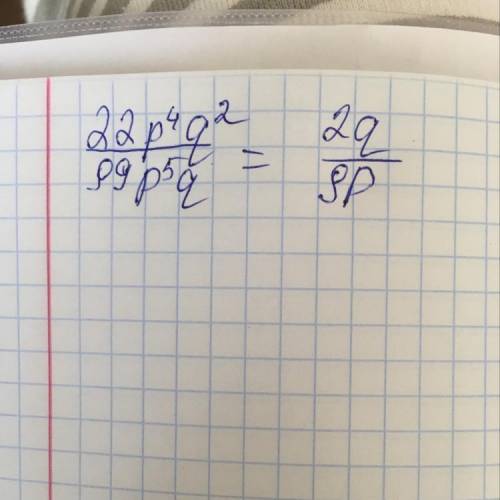 22p⁴q² / 99p⁵q = 2q / 9p